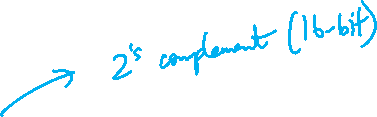 2's complement (16-bit)